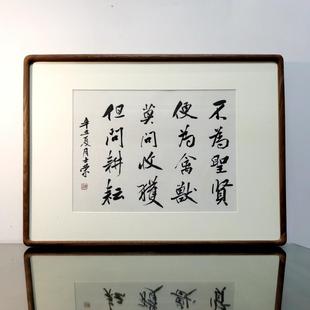 不為聖賢
便為禽獸
莫問收獲
但問耕耘
辛丑夏月士榮